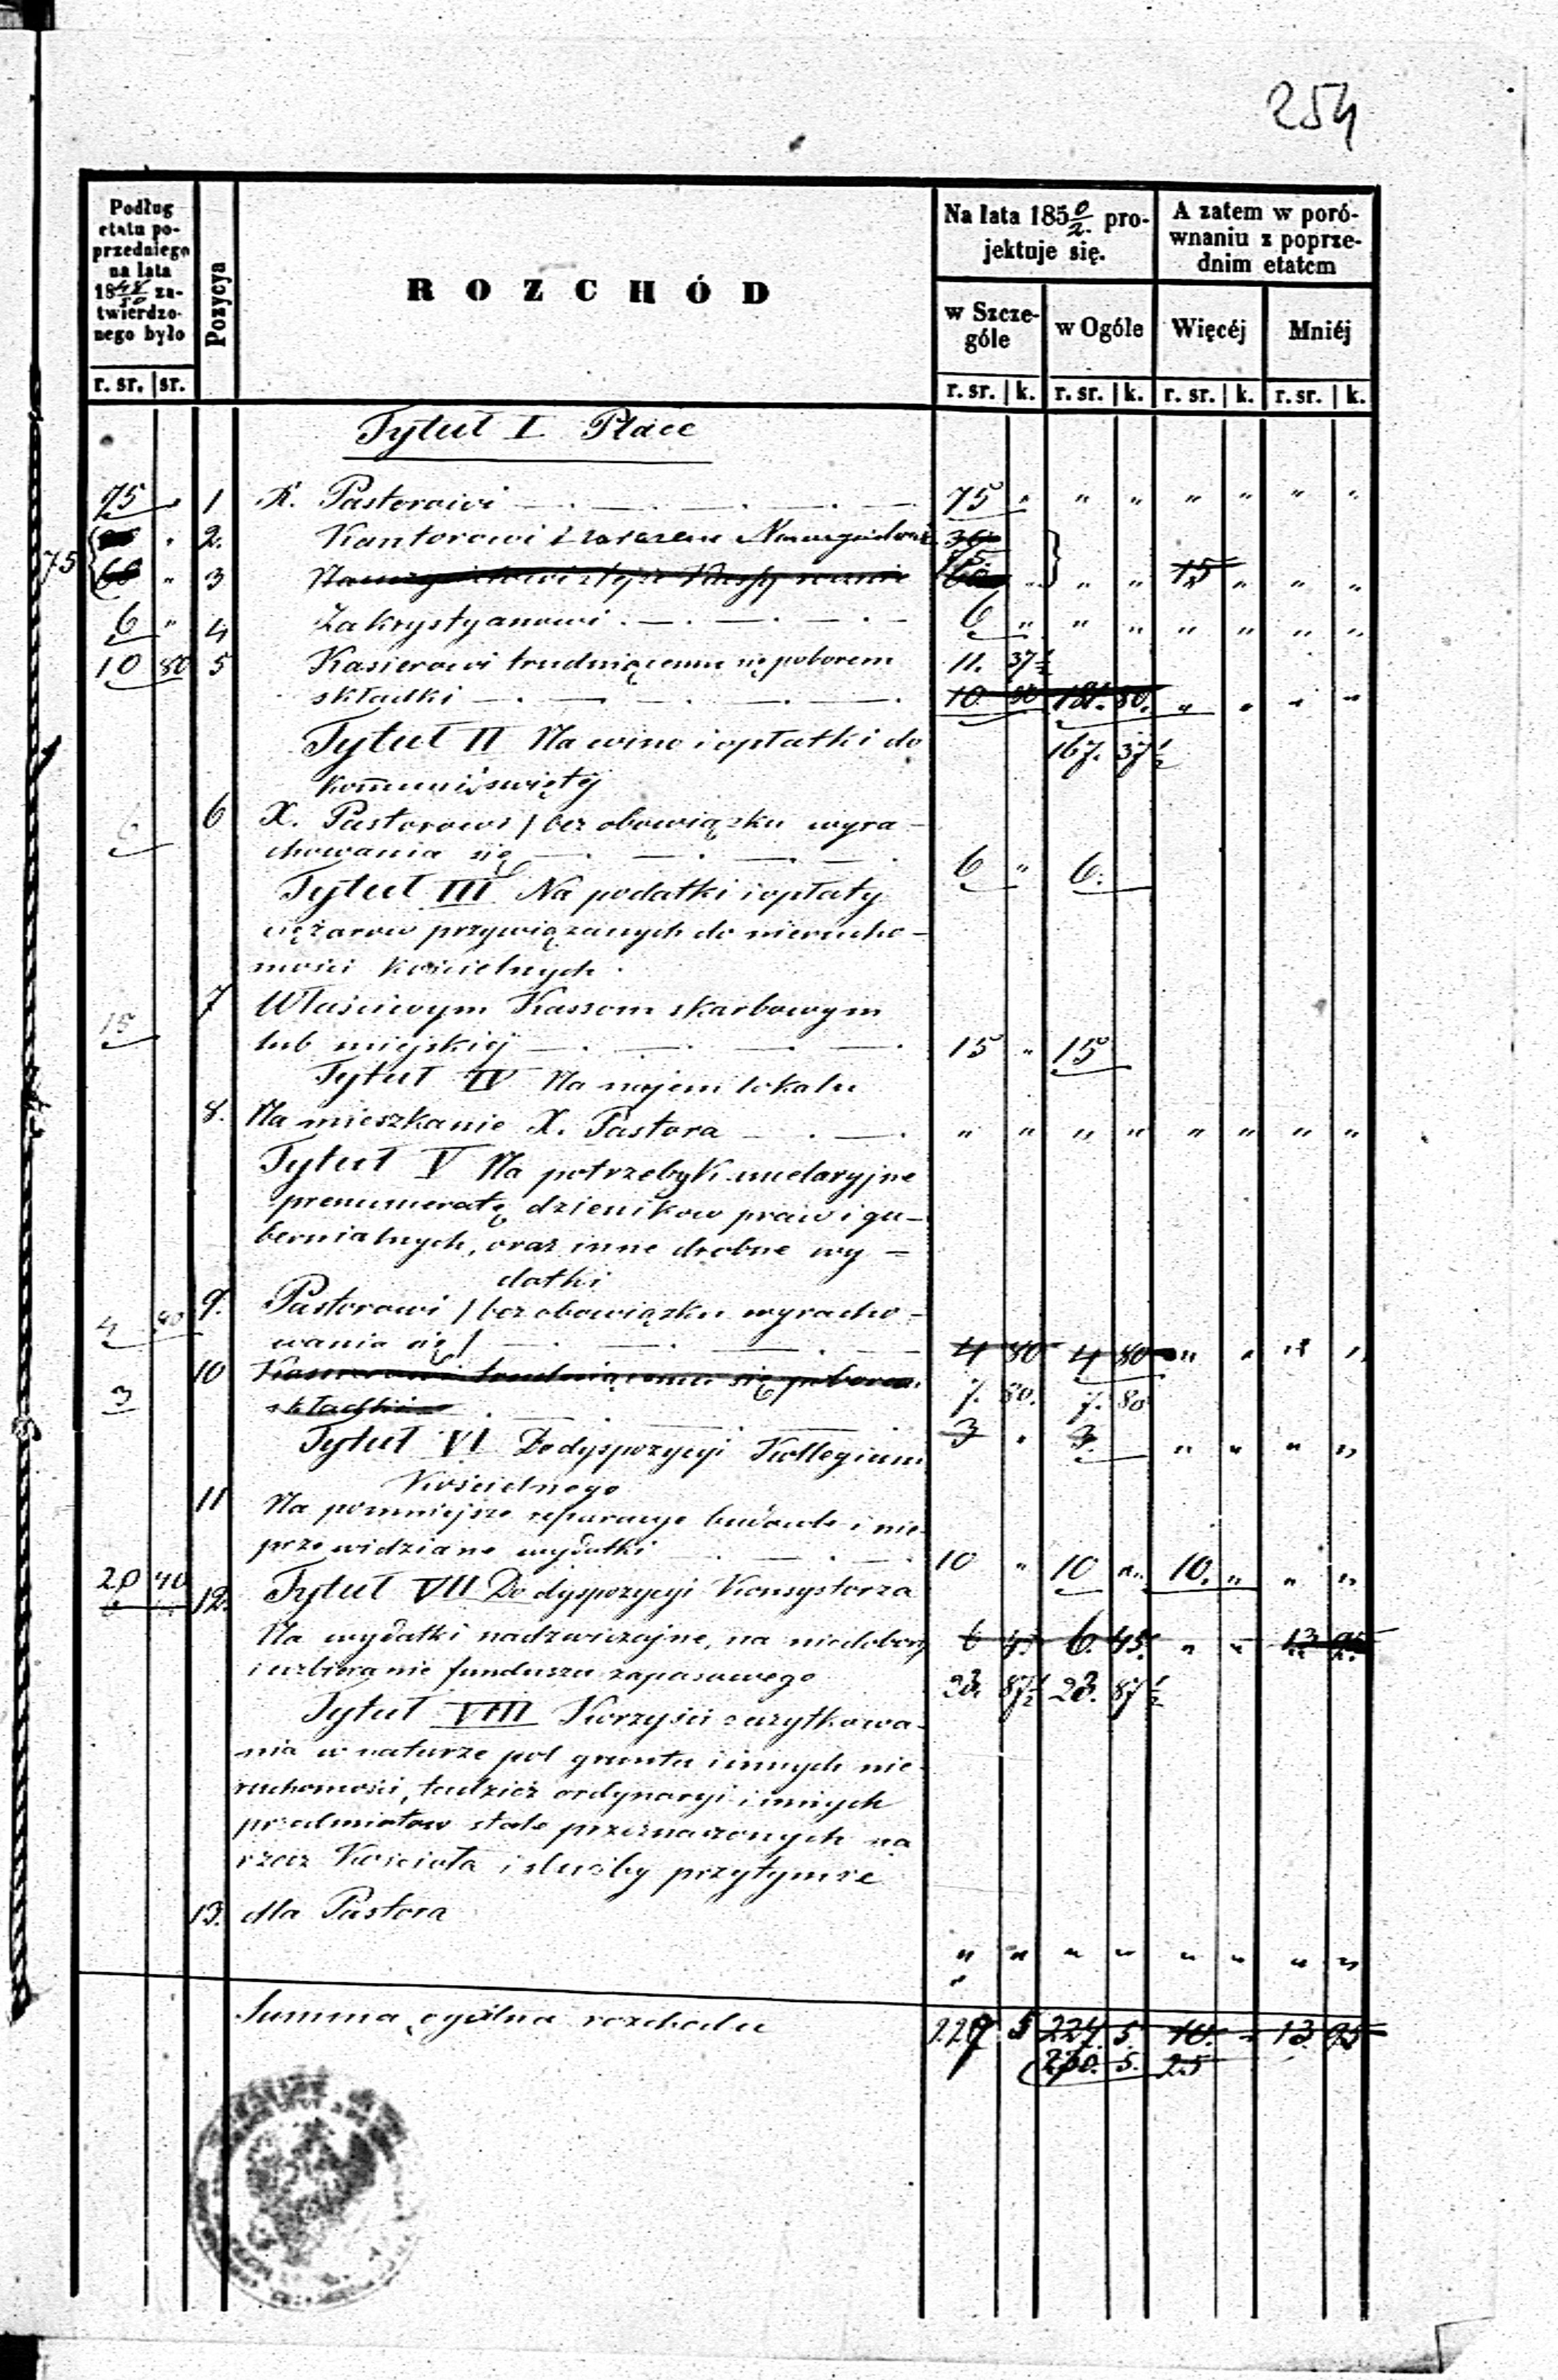 254
Podług etatu poprzedniego na lata 18 48/50 zatwierdzonego było
Pozycya
ROZCHÓD
Na lata 185 0/2. projektuje się.
A zatem w porównaniu z poprzednim etatem
w Szczególe w Ogóle Więcéj Mniéj
r. sr. sr. r. sr. k. r. sr. k. r. sr. k. r. sr. k.
Tytuł I Płace
75 " 1 X. Pastorowi 75 " " " " " " "
75 " 2. Kantorowi i zarazem 36
" 3 60 " " " 15 " " "
6 " 4 Zakrystyanowi 6 " " " " " " "
10 80 5 Kasierowi trudniącemu się poborem 11. 37 1/2
składki 10 80 80. " " " "
Tytuł II Na wino i opłatki do 167. 37 1/2
kommunii świętéj
6 6 X. Pastorowi / bez obowiązku wyra-
chowania się 6 " 6.
Tytuł III Na podatki i opłaty
ciężarów przywiązanych do nierucho-
mości kościelnych.
7 Właściwym Kassom skarbowym
15 lub miejskiéj 15 " 15
Tytuł IV Na najem lokalu
8. Na mieszkanie X. Pastora " " " " " " " "
Tytuł V Na potrzeby kancelaryjne
prenumeratę dzienikow praw i gu-
bernialnych, oraz inne drobne wy-
datki
4 80 9. Pastorowi / bez obowiązku wyracho-
wania się / 4 80 4 80 " " " "
3 10 Kasierowi trudniącemu się poborem 7. 80. 7. 80
składki 3 " 3. " " " "
Tytuł VI Do dyspozycyi Kollegium
Kościelnego
11 Na pomniejsze reparacye budowle i nie-
przewidziane wydatki 10 " 10 " 10. " " "
20 40 12. Tytuł VII Do dyspozycyi Konsystorza
Na wydatki nadzwiczajne, na niedobory 6 45 6. 45. " " 13 95
i uzbieranie funduszu zapasowego 23. 87 1/2 23. 87 1/2
Tytuł VIII Korzyści z użytkowa-
nia w naturze pol gruntu i innych nie-
ruchomości, tudzież ordynaryi i innych
przedmiotow stale przeznaczonych na
rzecz Kościoła i służby przytymże
13. dla Pastora
" " " " " " " "
Summa ogólna rozchodu 227 5 227 5 10. " 13 95
230. 5. 25